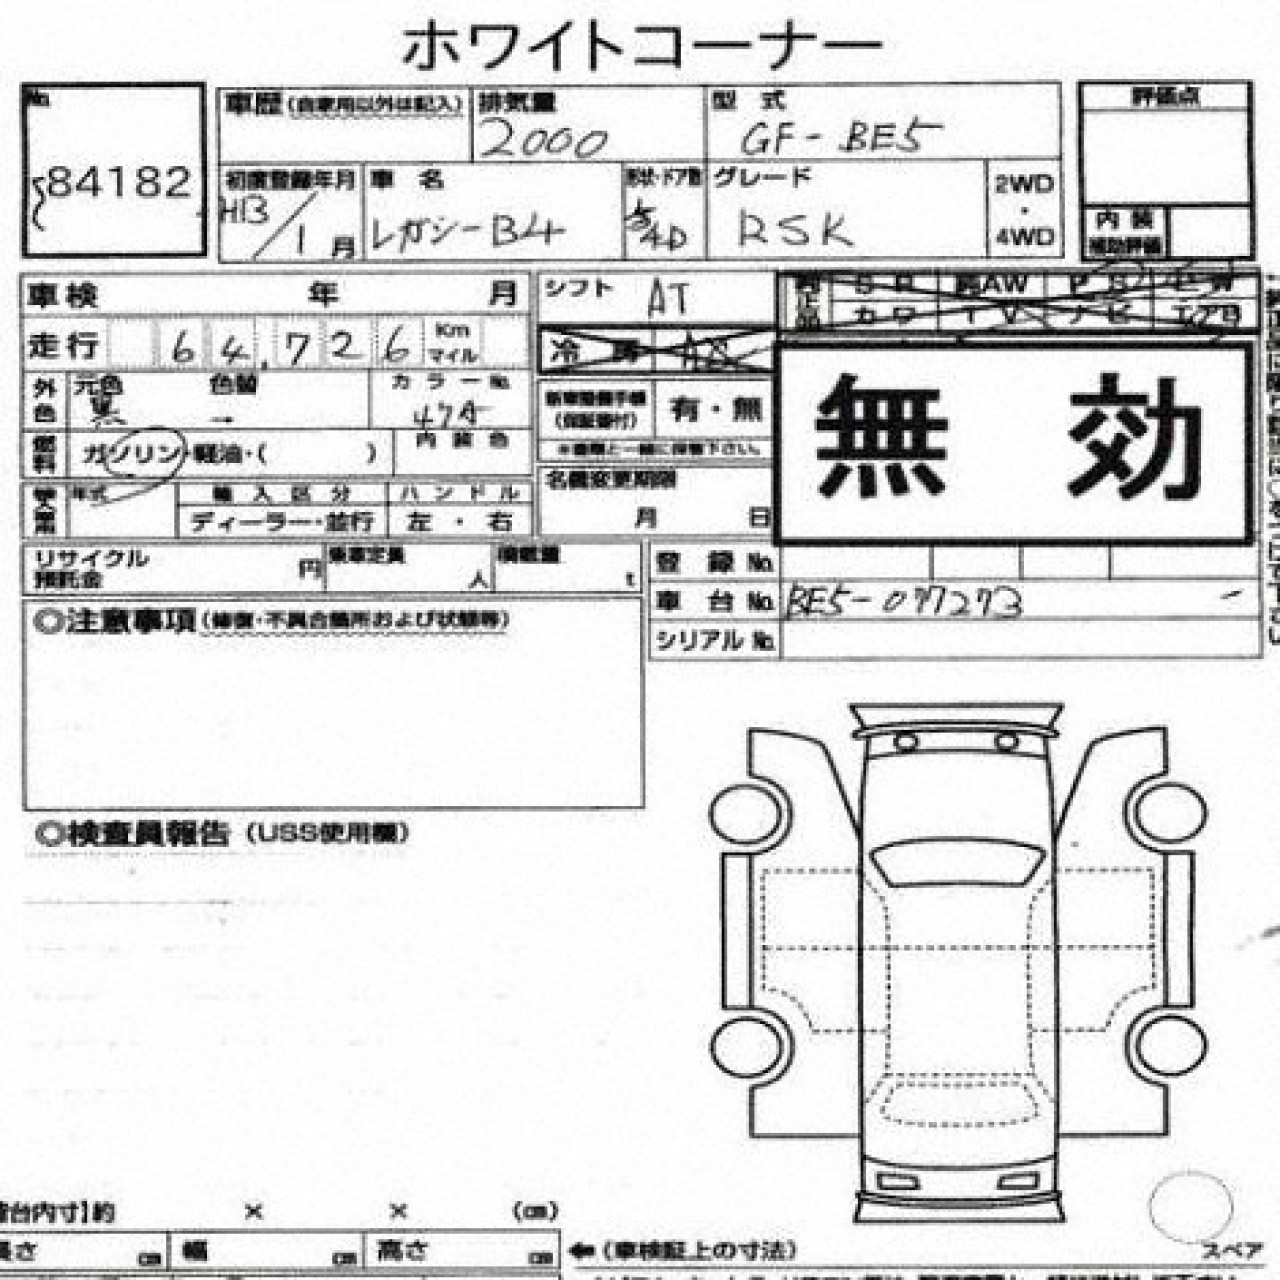 ホワイトコーナー
No. 84182
車歴 (自家用以外は記入) 排気量 2000 型式 GF-BE5 評価点
初度登録年月 H13/1月 車名 レガシーB4 形状・ドア数 4D グレード RSK 2WD・4WD
内装 補助評価
車検 年 月 シフト AT
走行 64,726 Km マイル 冷房
外色 元色 黒 色替 → カラーNo. 47A
新車整備手帳 (保証書付) 有・無
無効
※書類と一緒に保管下さい。
燃料 ガソリン・軽油・( ) 内装色
名義変更期限 月 日
年式 輸入区分 ハンドル
ディーラー・並行 左・右
リサイクル預託金 円 乗車定員 人 積載量 t
登録No.
車台No. BE5-077273
シリアルNo.
◎注意事項 (修復・不具合箇所および状態等)
◎検査員報告 (USS使用欄)
台内寸]約 × × (cm)
長さ cm 幅 cm 高さ cm ←(車検証上の寸法)
スペア